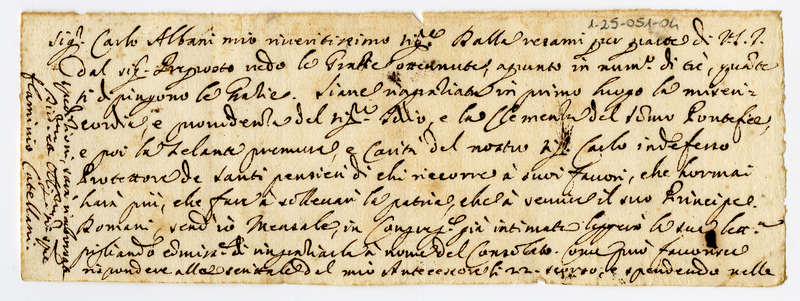 1-25-051-04
Sig.r Carlo Albani mio riveritissimo Sig.re Dalla resami per parte di V.S.I.
dal Sig.r Preposto vedo le Gratie ottenute, apunto in num.o di trè, quante
si dipingono le Gratie. Siane ringratiata in primo luogo la miseri-
cordia, e providenza del Sig.re Iddio, e la Clemenza del Som̃o Pontefice,
e poi la zelante premura, e Carità del nostro Sig.r Carlo indefesso
Protettore de santi pensieri di chi ricorre à suoi favori, che hormai
harà più, che fare à sollevar la patria, che à servire il suo Principe.
Domani send'io Mensale, in Congreg.e già intimata leggerò le sue lett.e
pigliando di ringratiarla à nome del Consolato. come può favorire
rispondere alle del mio Antecessore li 22 e spendendo nelle
spedizioni, sarà rimborsata
Flaminio Catellani.